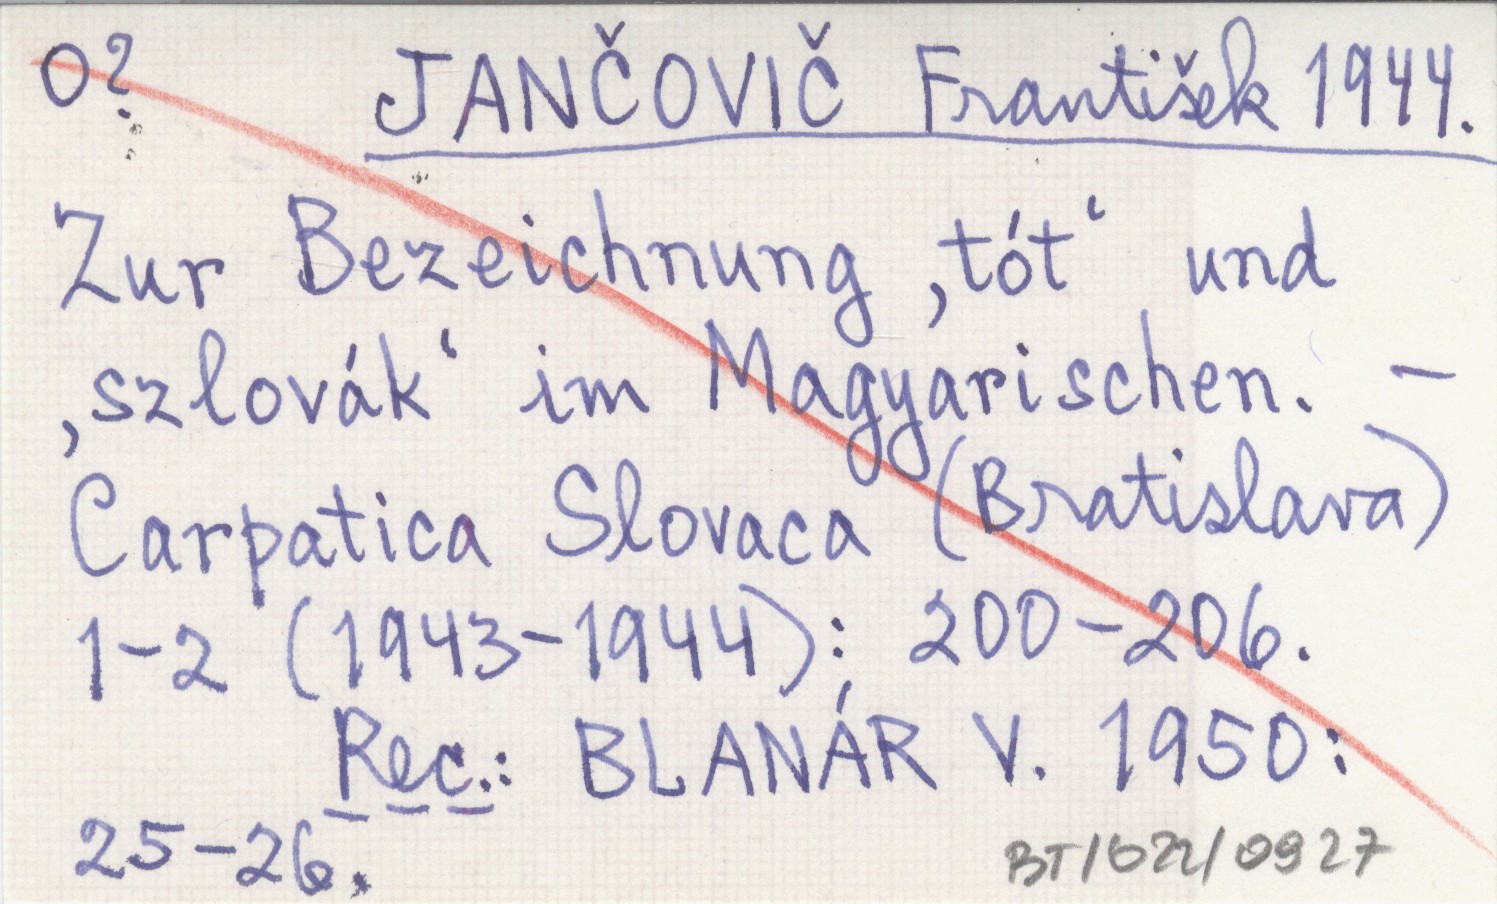 O? JANČOVIČ František 1944.
Zur Bezeichnung ‚tót‘ und
‚szlovák‘ im Magyarischen. –
Carpatica Slovaca (Bratislava)
1–2 (1943–1944): 200–206.
Rec.: BLANÁR V. 1950:
25–26.
BT/622/0927